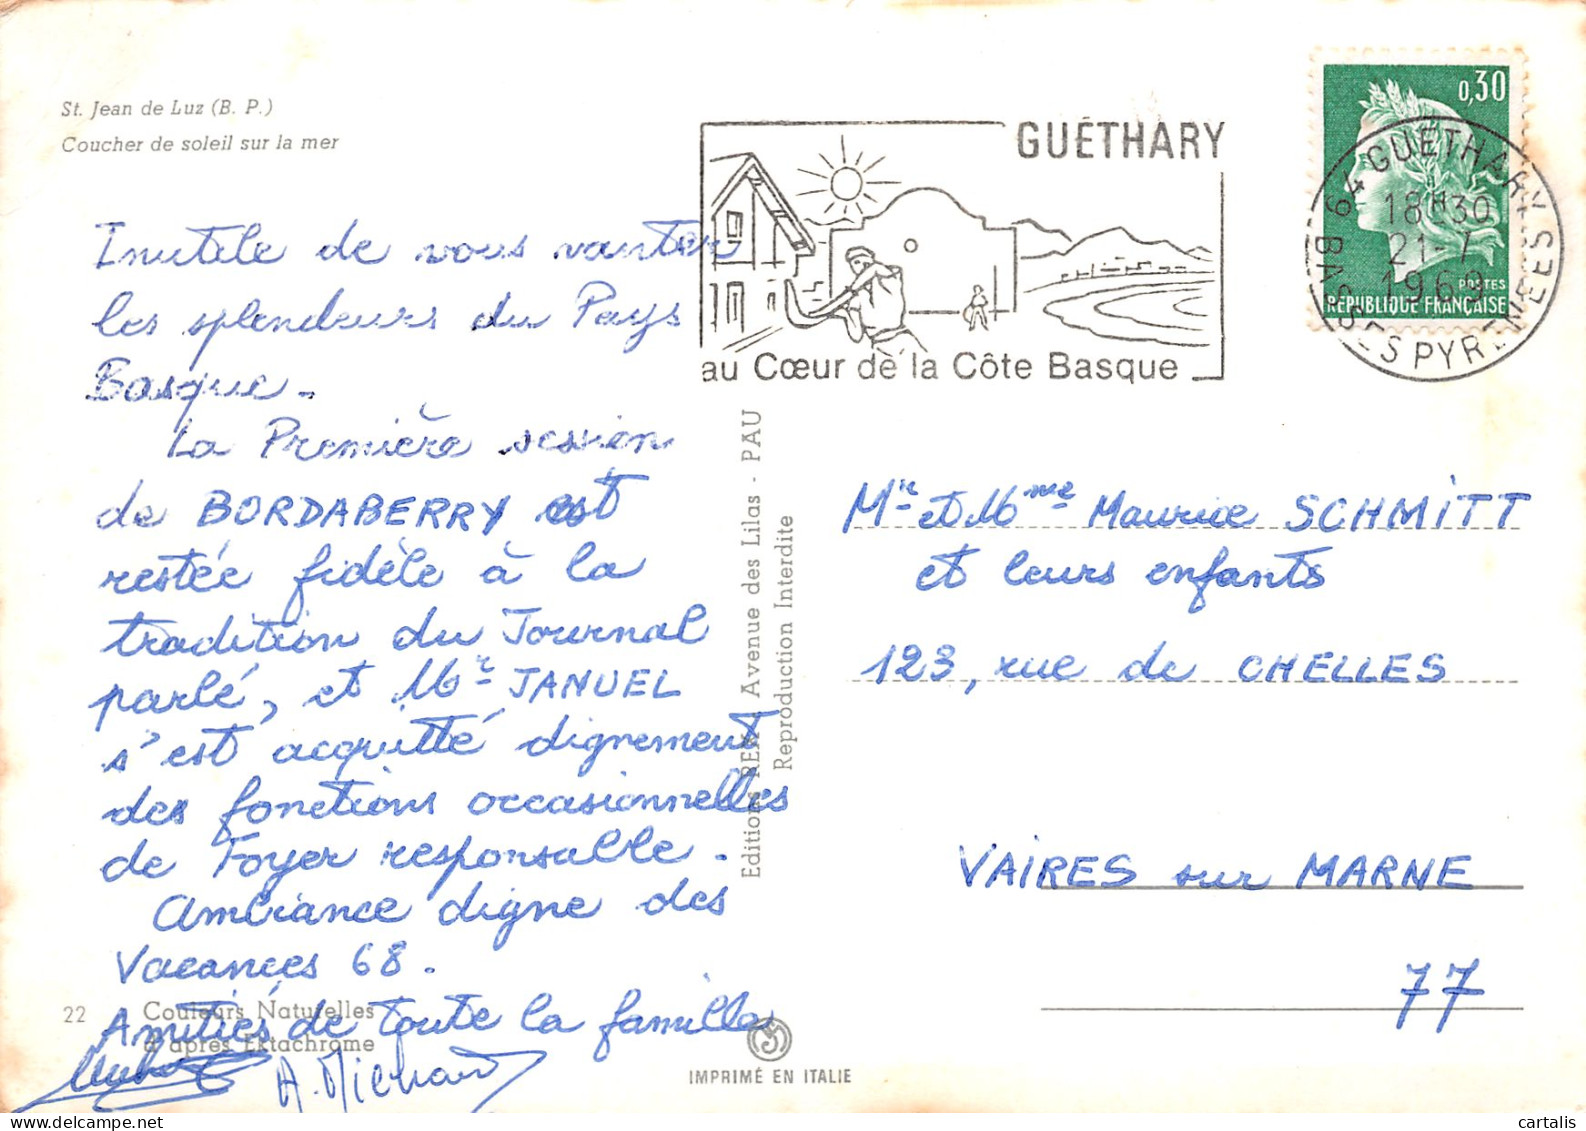 St. Jean de Luz (B. P.)
Coucher de soleil sur la mer
Inutile de vous vanter
les splendeurs du Pays
Basque.
La Première session
de BORDABERRY est
restée fidèle à la
tradition du Journal
parlé, et Mr JANUEL
s'est acquitté dignement
des fonctions occasionnelles
de Foyer responsable.
Ambiance digne des
Vacances 68.
Amitiés de toute la famille
A. Michaud
22
Couleurs Naturelles
d'après Ektachrome
Editions REX - Avenue des Lilas - PAU
Reproduction Interdite
IMPRIMÉ EN ITALIE
GUÉTHARY
au Cœur de la Côte Basque
0,30
POSTES
RÉPUBLIQUE FRANÇAISE
64 GUÉTHARY
18H30
21-7
1969
BASSES PYRENEES
Mr et Mme Maurice SCHMITT
et leurs enfants
123, rue de CHELLES
VAIRES sur MARNE
77
cartalis
delcampe.net